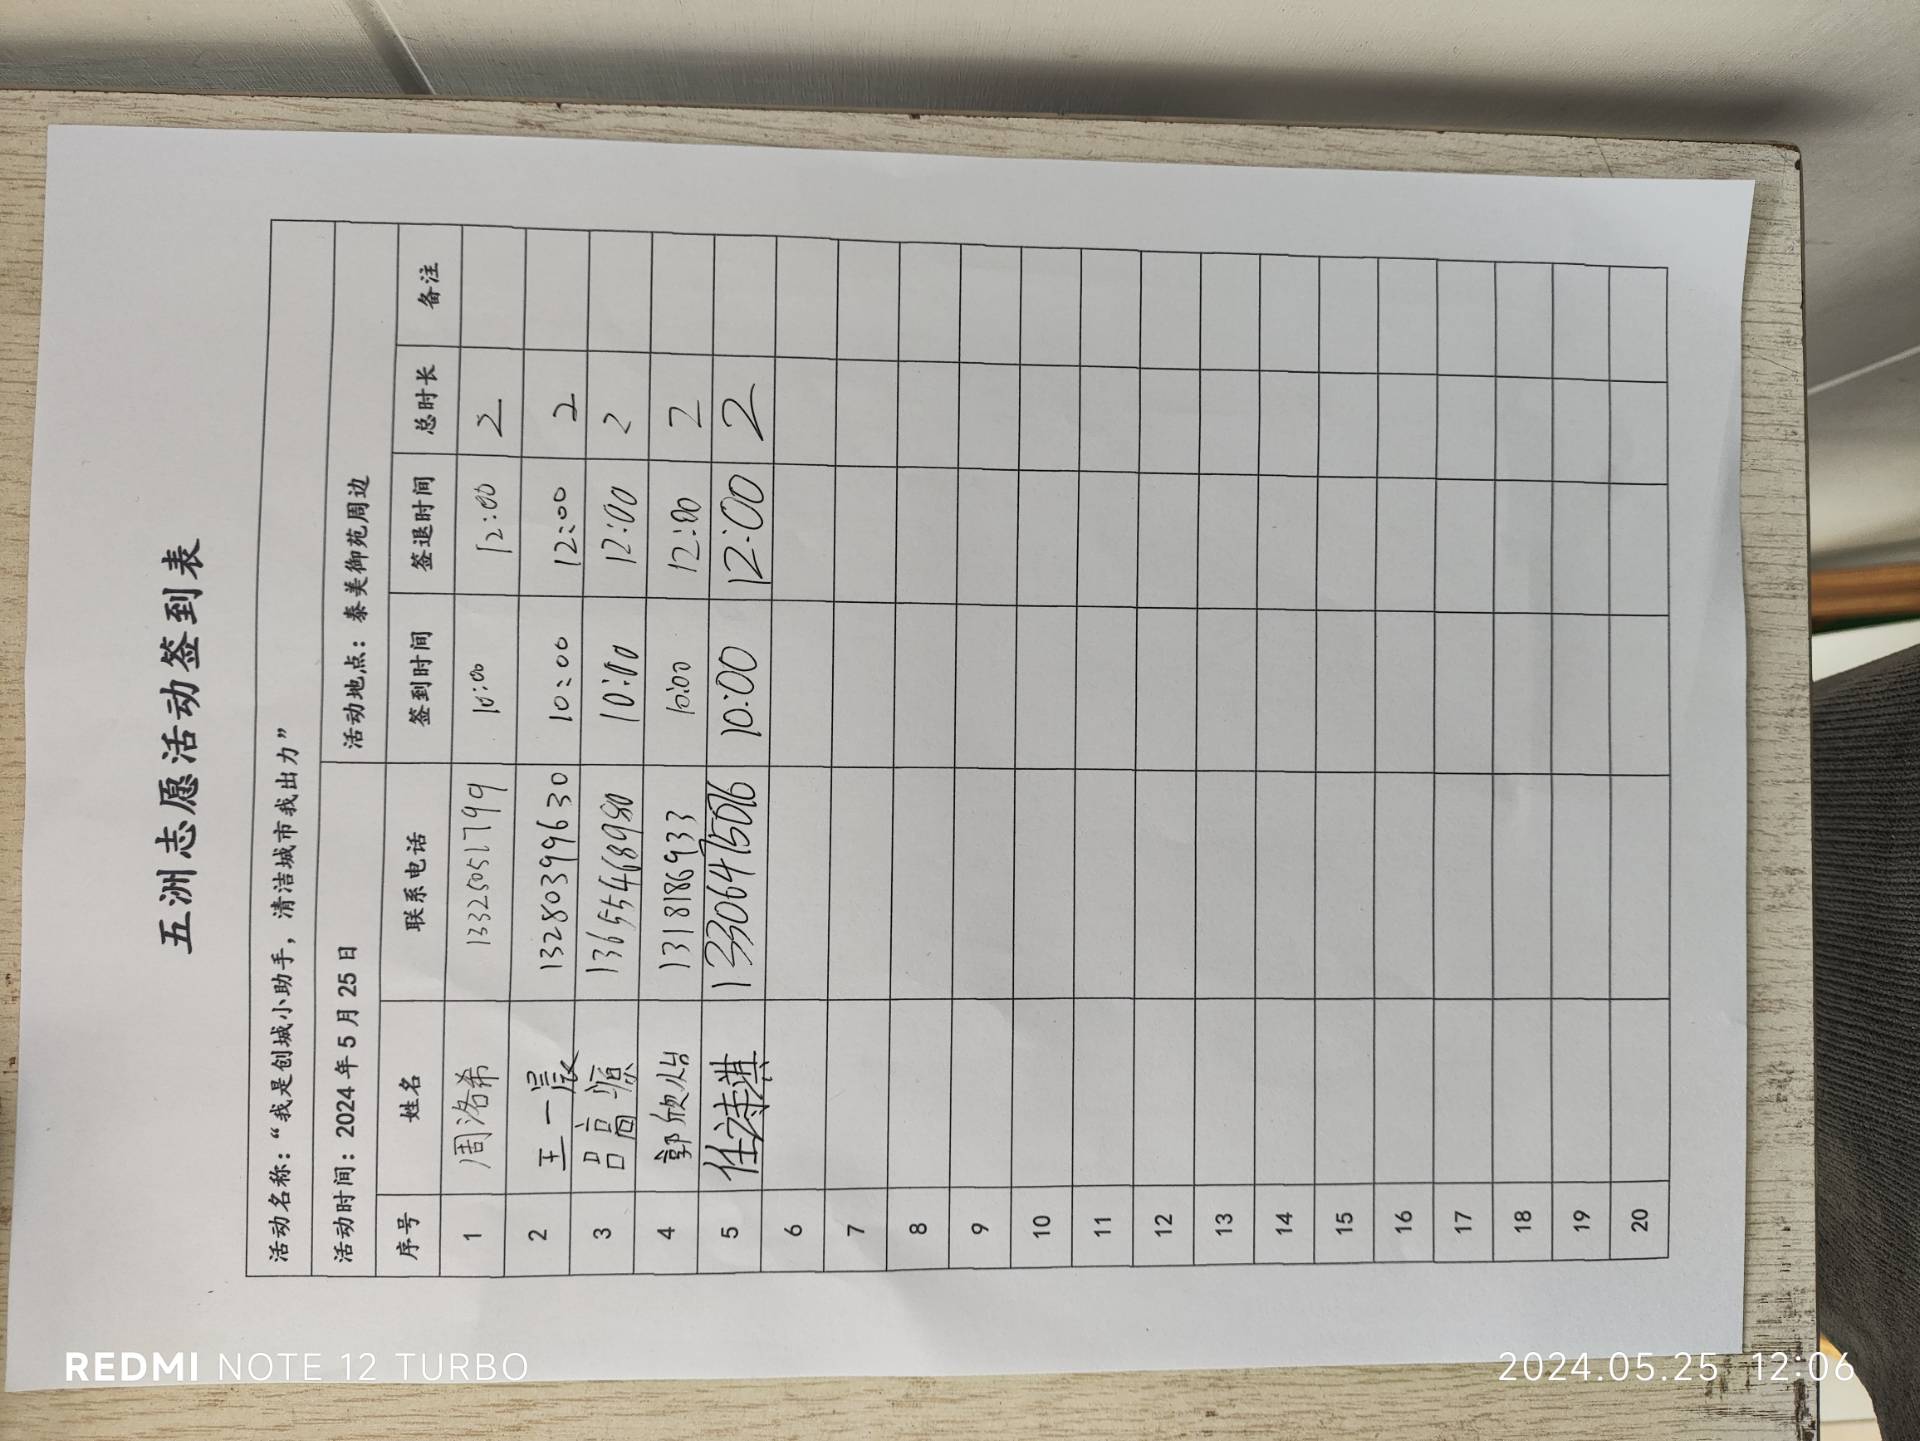 五洲志愿活动签到表
活动名称：“我是创城小助手，清洁城市我出力”
活动时间：2024年5月25日 活动地点：泰美御苑周边
序号 姓名 联系电话 签到时间 签退时间 总时长 备注
1 周洛希 13325051799 10:00 12:00 2
2 王一晨 13280399630 10:00 12:00 2
3 吕富源 13655468980 10:00 12:00 2
4 郭欣怡 1318186933 10:00 12:00 2
5 任诗淇 10:00 12:00 2
6
7
8
9
10
11
12
13
14
15
16
17
18
19
20
REDMI NOTE 12 TURBO
2024.05.25 12:06